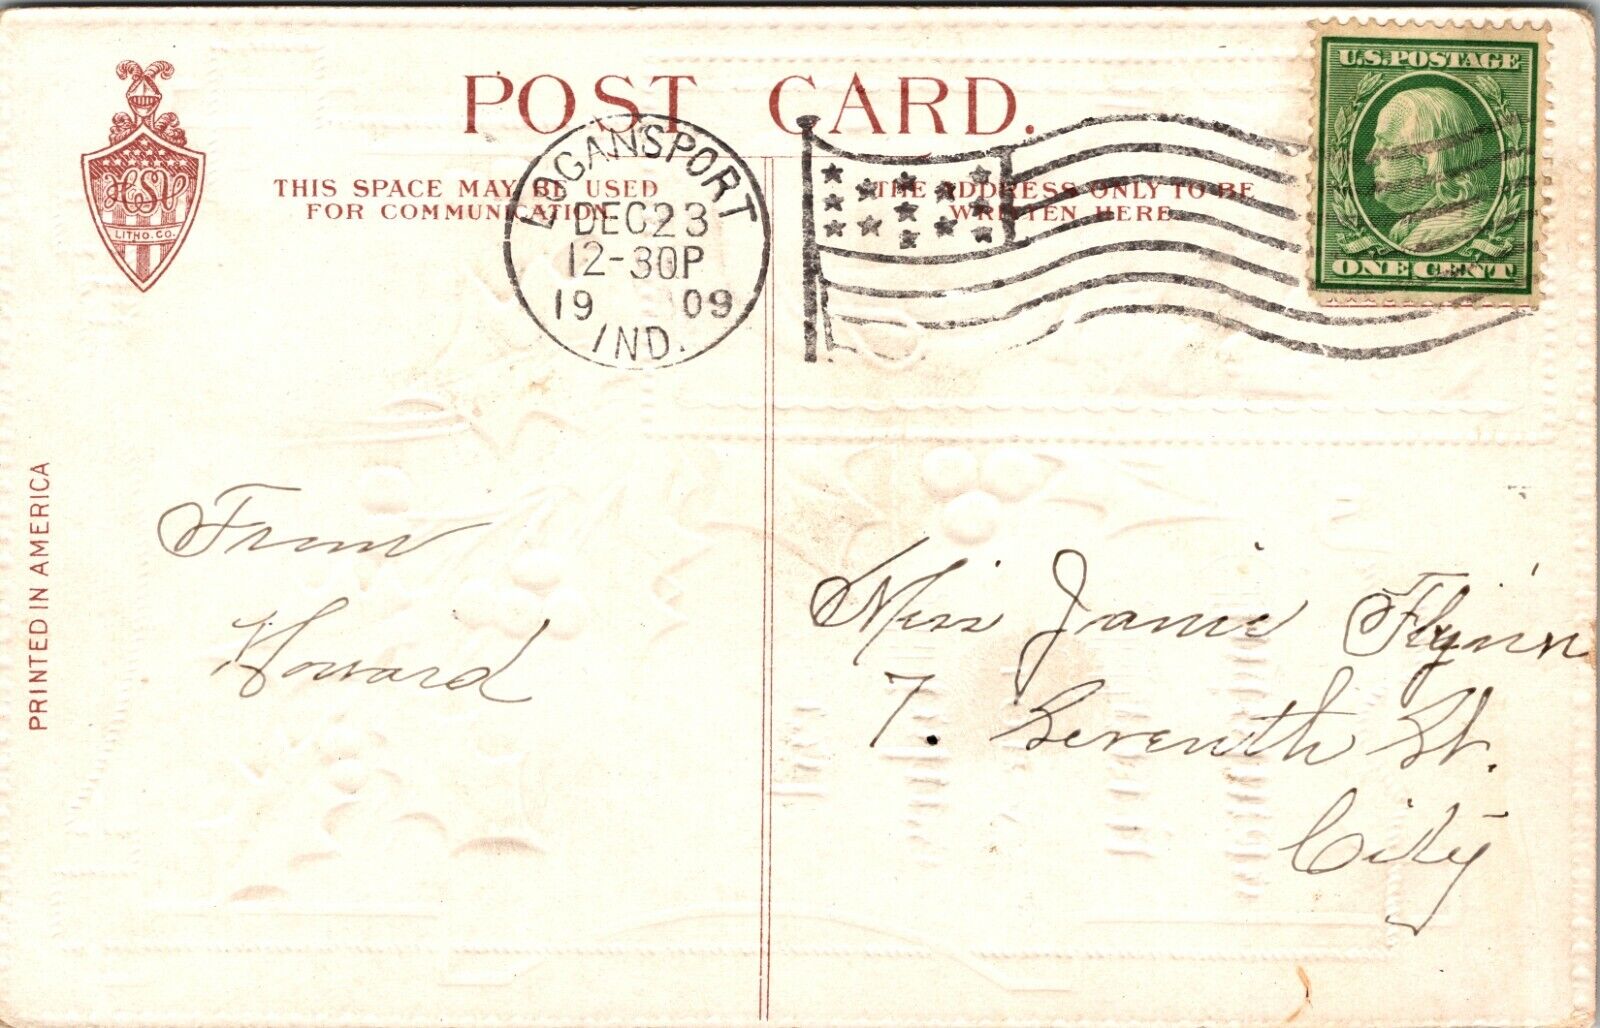 POST CARD.
U.S. POSTAGE
ONE CENT
LOGANSPORT
DEC 23
12-30P
19 09
IND.
THIS SPACE MAY BE USED
FOR COMMUNICATION
THE ADDRESS ONLY TO BE
WRITTEN HERE
HSV
LITHO. CO.
PRINTED IN AMERICA
From
Howard
Miss Janie Flynn
7. Seventh St.
City